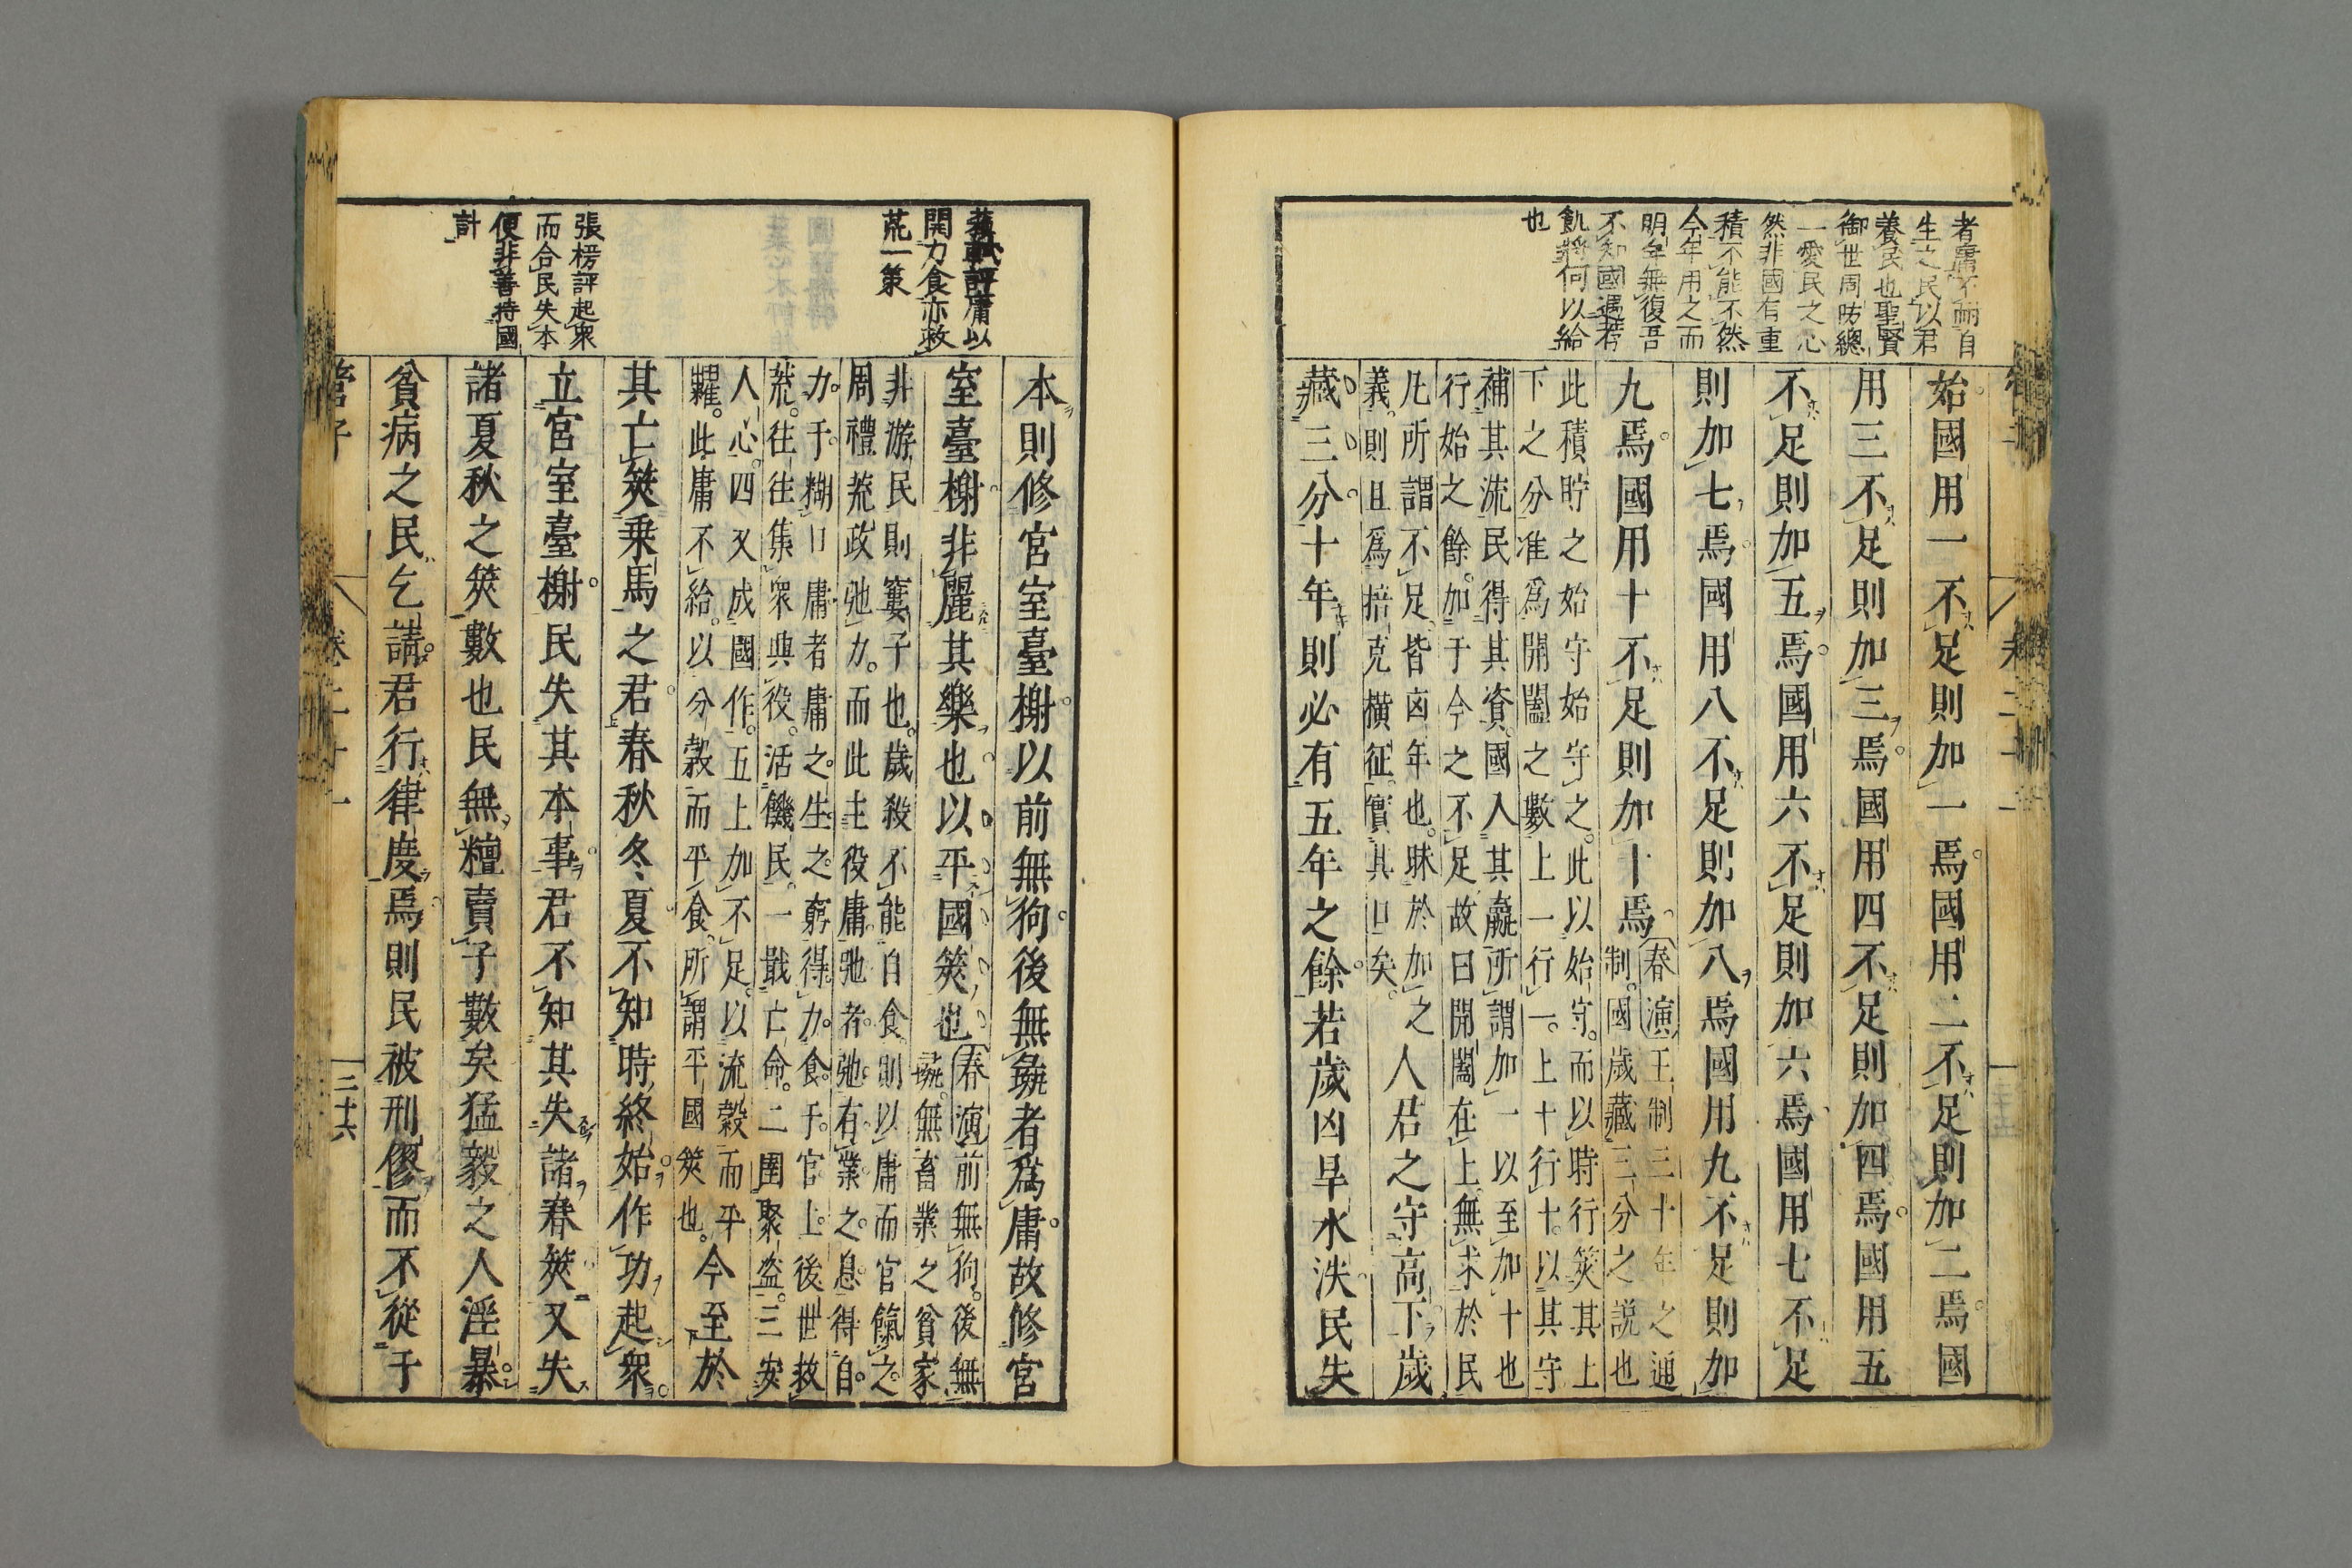 者庸不耐自
生之民以君
養民也聖賢
御世周昉總
一愛民之心
然非國有重
積不能不然
今年用之而
明年無復吾
不知國遇若
飢將何以給
也
始國用一不足則加一焉國用二不足則加二焉國
用三不足則加三焉國用四不足則加四焉國用五
不足則加五焉國用六不足則加六焉國用七不足
則加七焉國用八不足則加八焉國用九不足則加
九焉國用十不足則加十焉
春演王制三十年之通
制國歲藏三分之說也
此積貯之始守始守之此以始守而以時行筴其上
下之分准爲開闔之數上一行一上十行十以其守
補其流民得其資國入其羸所謂加一以至加十也
行始之餘加于今之不足故曰開闔在上無求於民
凡所謂不足皆凶年也昧於加之
義則且爲掊克橫征實其口矣
人君之守高下歲
藏三分十年則必有五年之餘若歲凶旱水泆民失
蘓軾評庸以
開力食亦救
荒一策
張榜評起衆
而合民失本
便非善持國
計
本則修宮室臺榭以前無狗後無彘者爲庸故修宮
室臺榭非麗其樂也以平國筴也
春演前無狗後無
彘無畜業之貧家
非游民則窶子也歲殺不能自食則以庸而官餼之
周禮荒政弛力而此主役庸弛者弛有業之息得自
力于糊口庸者庸之生之窮得力食于官上後世救
荒往往集衆興役活饑民一戢亡命二圉聚盜三安
人心四又成國作五上加不足以流穀而平
糶此庸不給以分穀而平食所謂平國筴也
今至於
其亡筴乗馬之君春秋冬夏不知時終始作功起衆
立宮室臺榭民失其本事君不知其失諸春筴又失
諸夏秋之筴數也民無糧賣子數矣猛毅之人淫暴
貧病之民乞請君行律度焉則民被刑僇而不從于
管子 卷二十一 三十六